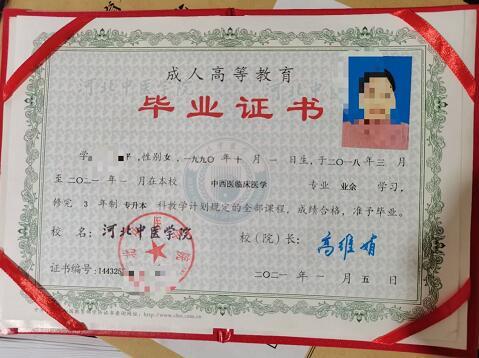 成人高等教育
毕业证书
学 性别女,一九九〇年十月一日生,于二〇一八年三月
至二〇二一年一月在本校 中西医临床医学 专业 业余 学习,
修完 3 年制 专升本 科教学计划规定的全部课程,成绩合格,准予毕业。
校 名: 河北中医学院 校(院)长: 高维娟
证书编号: 144325
二〇二一年一月五日
http://www.chsi.com.cn